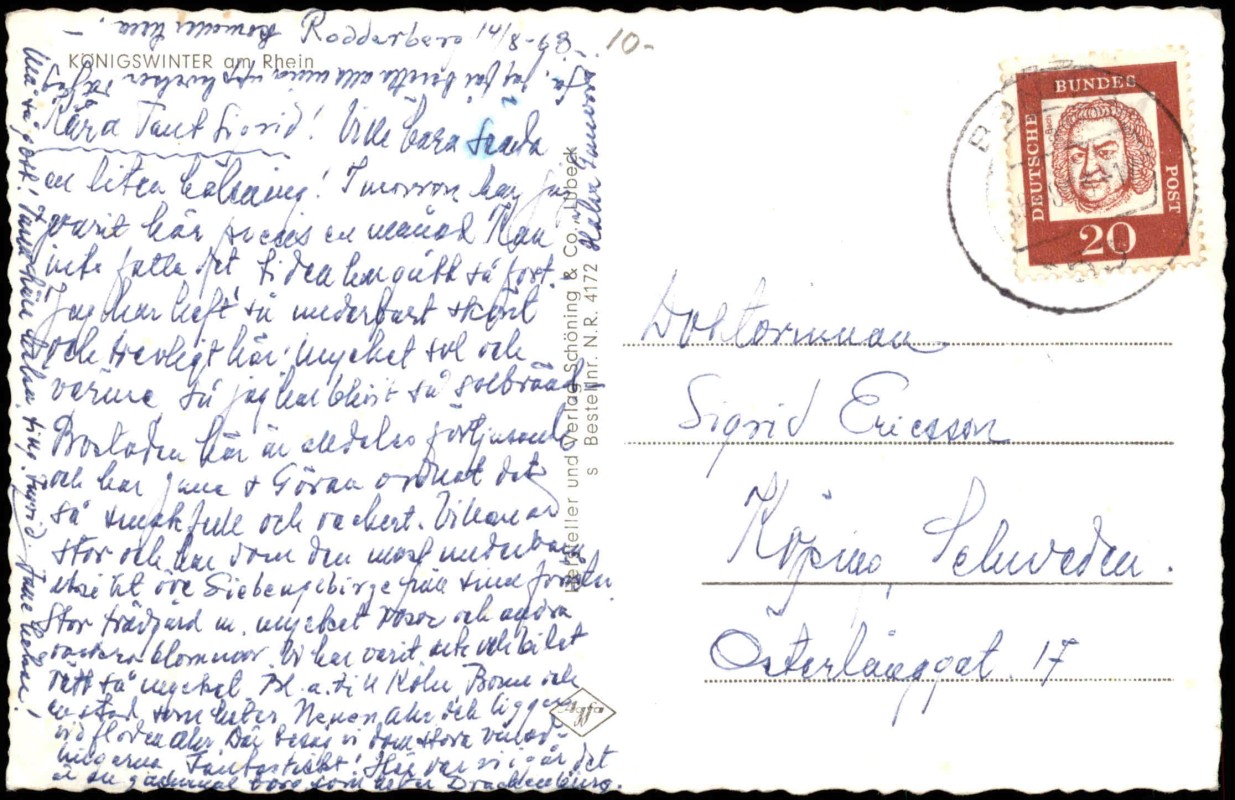 Rodderberg 14/8-68-
10-
KÖNIGSWINTER am Rhein
Kära Tant Sigrid! Ville bara sända
en liten hälsning! I morron har jag
varit här precis en månad Kan
inte fatta det tiden har gått så fort.
Jag har haft så underbart skönt
och trevligt här: mycket sol och
värme så jag har blivit så solbränd
Bostaden här är alldeles förtjusande
och har Jane & Göran ordnat det
så smakfull och vackert. Villan är
stor och har dom den mest underbara
utsikt öve Siebengebirge från sina fönster
Stor trädgård m. mycket rosor och andra
vackra blommor. Vi har varit ute och bilat
rätt så mycket Bl. a. till Köln, Bonn och
en stad som heter Neuenahr och ligger
vid floden Ahr. Där besåg vi dom stora vinod-
lingarna Fantastiskt! Här var vi igår det
är en gammal borg som heter Drachenburg.
Må så gott!
Hersteller und Verlag Schöning & Co., Lübeck
s Bestellnr. N.R. 4172
Agfa
DEUTSCHE BUNDES POST
20
Doktorinnan
Sigrid Ericsson
Köping, Schweden.
Österlånggat. 17